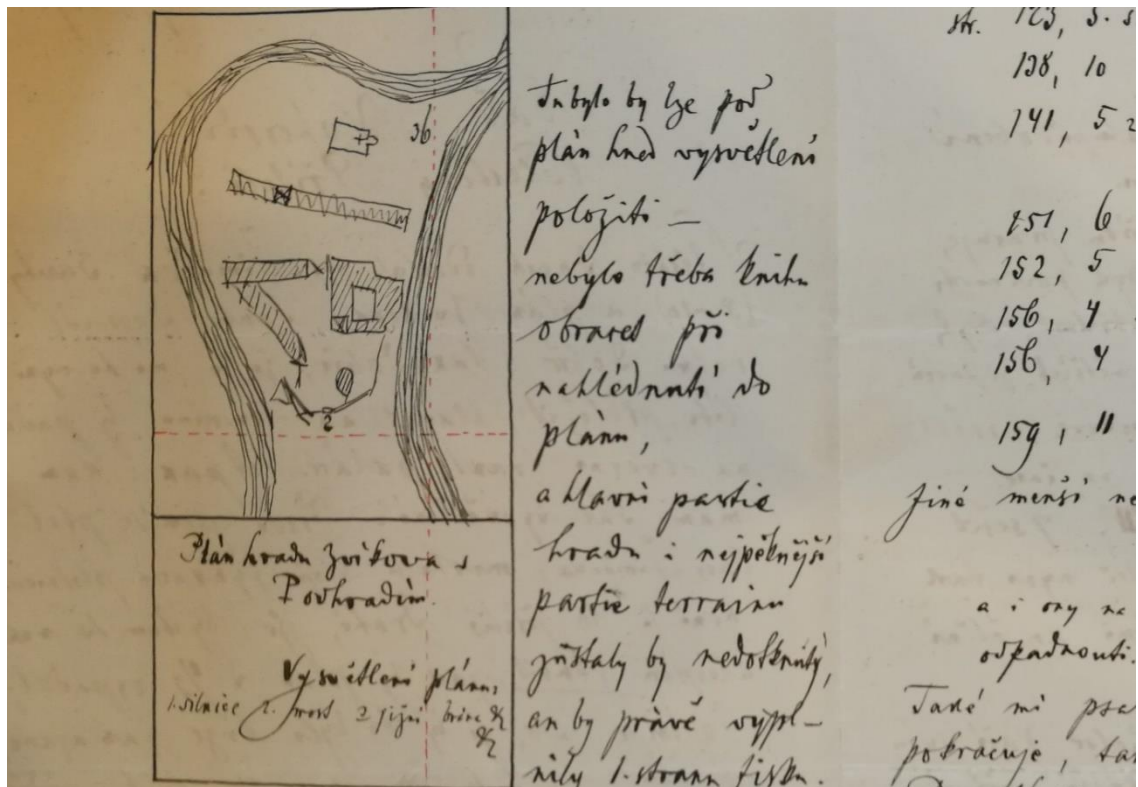 36
2
Plán hradu Zvíkova s
Podhradím.
Vysvětlení plánu:
1. silnice 2. most 3 jižní brána &c
&c
Tu bylo by lze pod
plán hned vysvětlení
položiti —
nebylo třeba knihu
obracet při
nahlédnutí do
plánu,
a hlavní partie
hradu i nejpěknější
partie terrainu
zůstaly by nedotknuty,
an by právě vypl-
nily 1. stranu tisku.
str. 123, 3. s
138, 10
141, 5 z
151, 6
152, 5
156, 4
156, 4
159, 11
Jiné menší ne
a i ony na
odpadnouti.
Také mi psa
pokračuje, tak